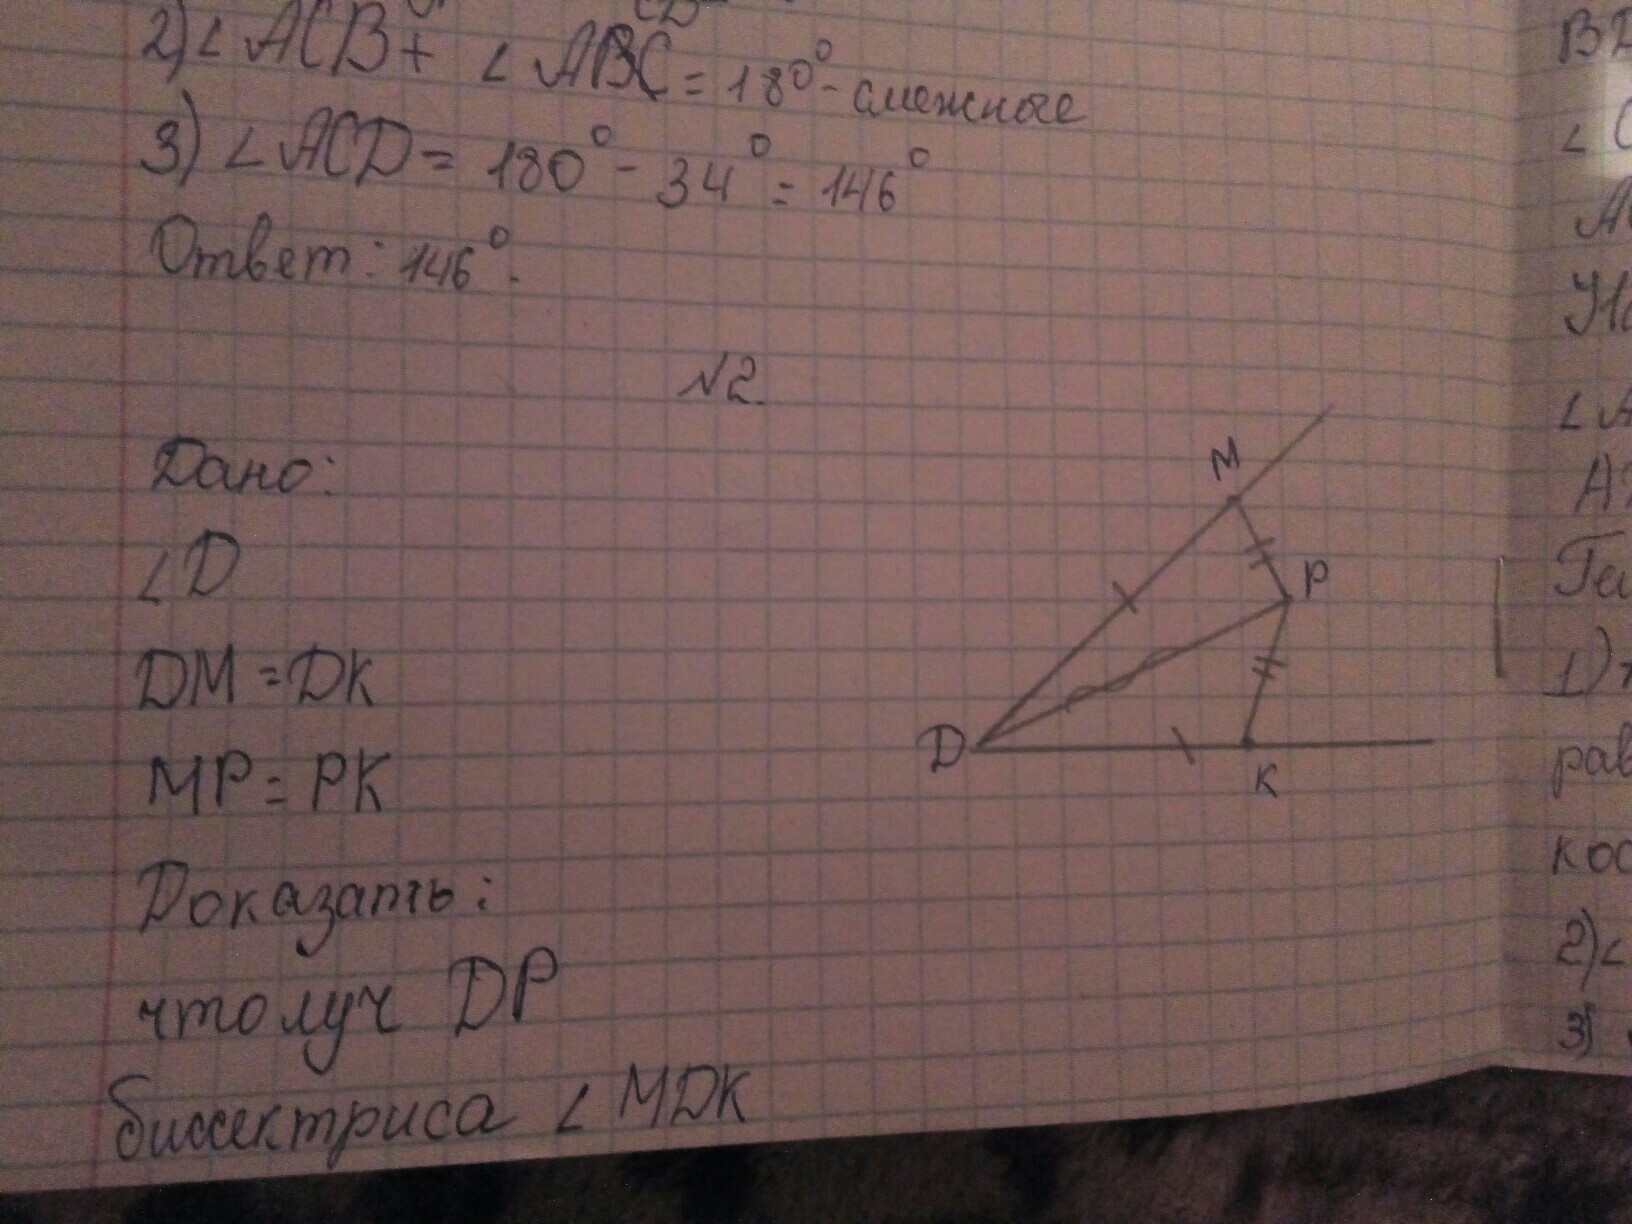 2) ∠ACB + ∠ABC = 180° - смежные
CD
3) ∠ACD = 180° - 34° = 146°
Ответ: 146°.
№2.
Дано:
∠D
DM = DK
MP = PK
Доказать:
что луч DP
биссектриса ∠MDK
M
P
D
K
∠A
1)
рав
кос
2)∠
3)